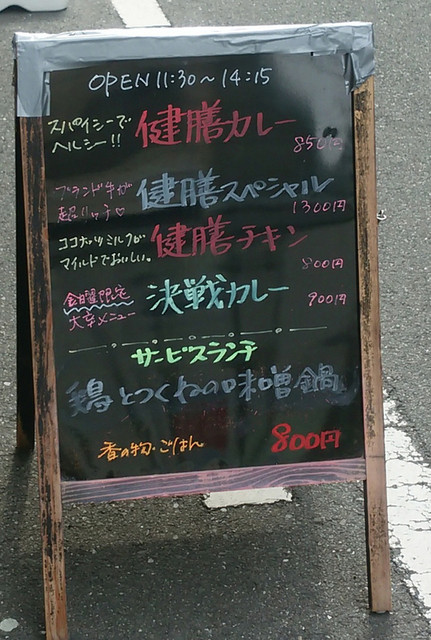 OPEN 11:30〜14:15
スパイシーで
ヘルシー!!
健膳カレー
850円
ブランド牛が
超リッチ♡
健膳スペシャル
1300円
ココナッツミルクが
マイルドでおいしい。
健膳チキン
800円
金曜限定
大辛メニュー
決戦カレー
900円
サービスランチ
鶏とつくねの味噌鍋
香の物・ごはん
800円